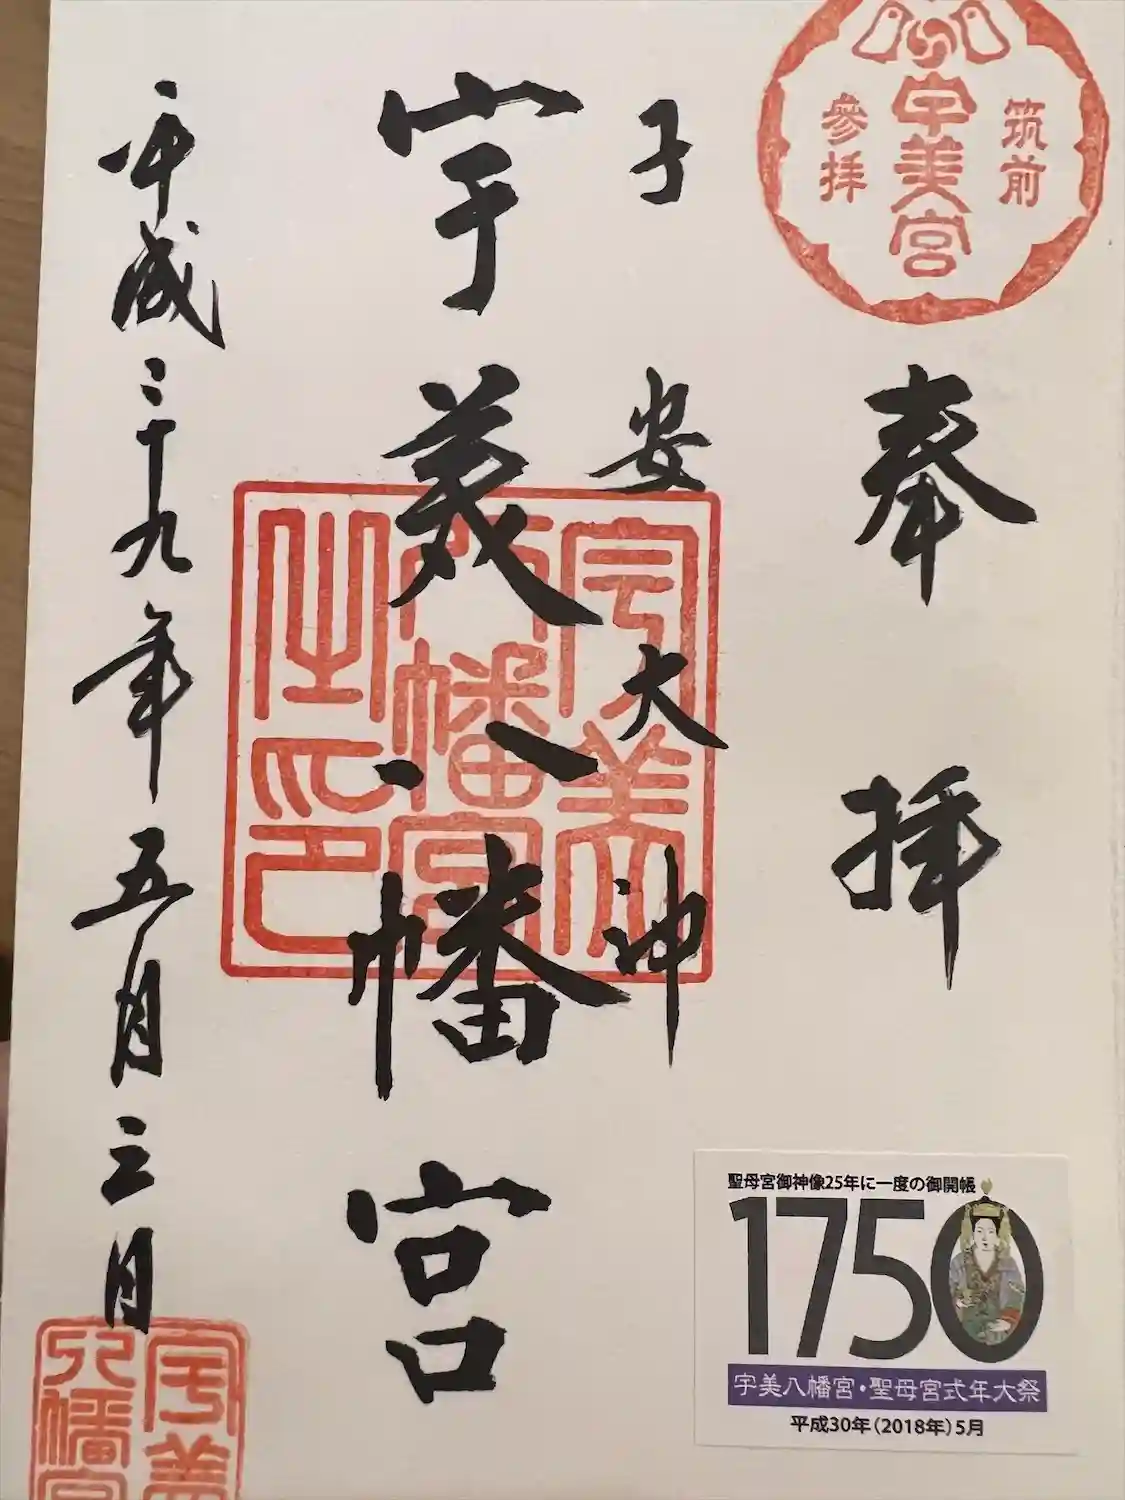 筑前
宇美宮
參拝
奉拝
子安大神
宇美八幡宮
宇美
八幡宮
之印
平成二十九年五月三日
宇美
八幡宮
聖母宮御神像25年に一度の御開帳
1750
宇美八幡宮・聖母宮式年大祭
平成30年(2018年)5月